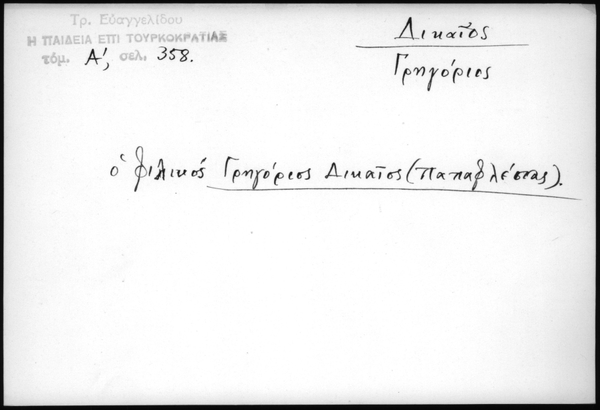 Τρ. Εὐαγγελίδου
Η ΠΑΙΔΕΙΑ ΕΠΙ ΤΟΥΡΚΟΚΡΑΤΙΑΣ
τόμ. Α', σελ. 358.
Δικαῖος
Γρηγόριος
ὁ φιλικός Γρηγόριος Δικαῖος (Παπαφλέσσας).